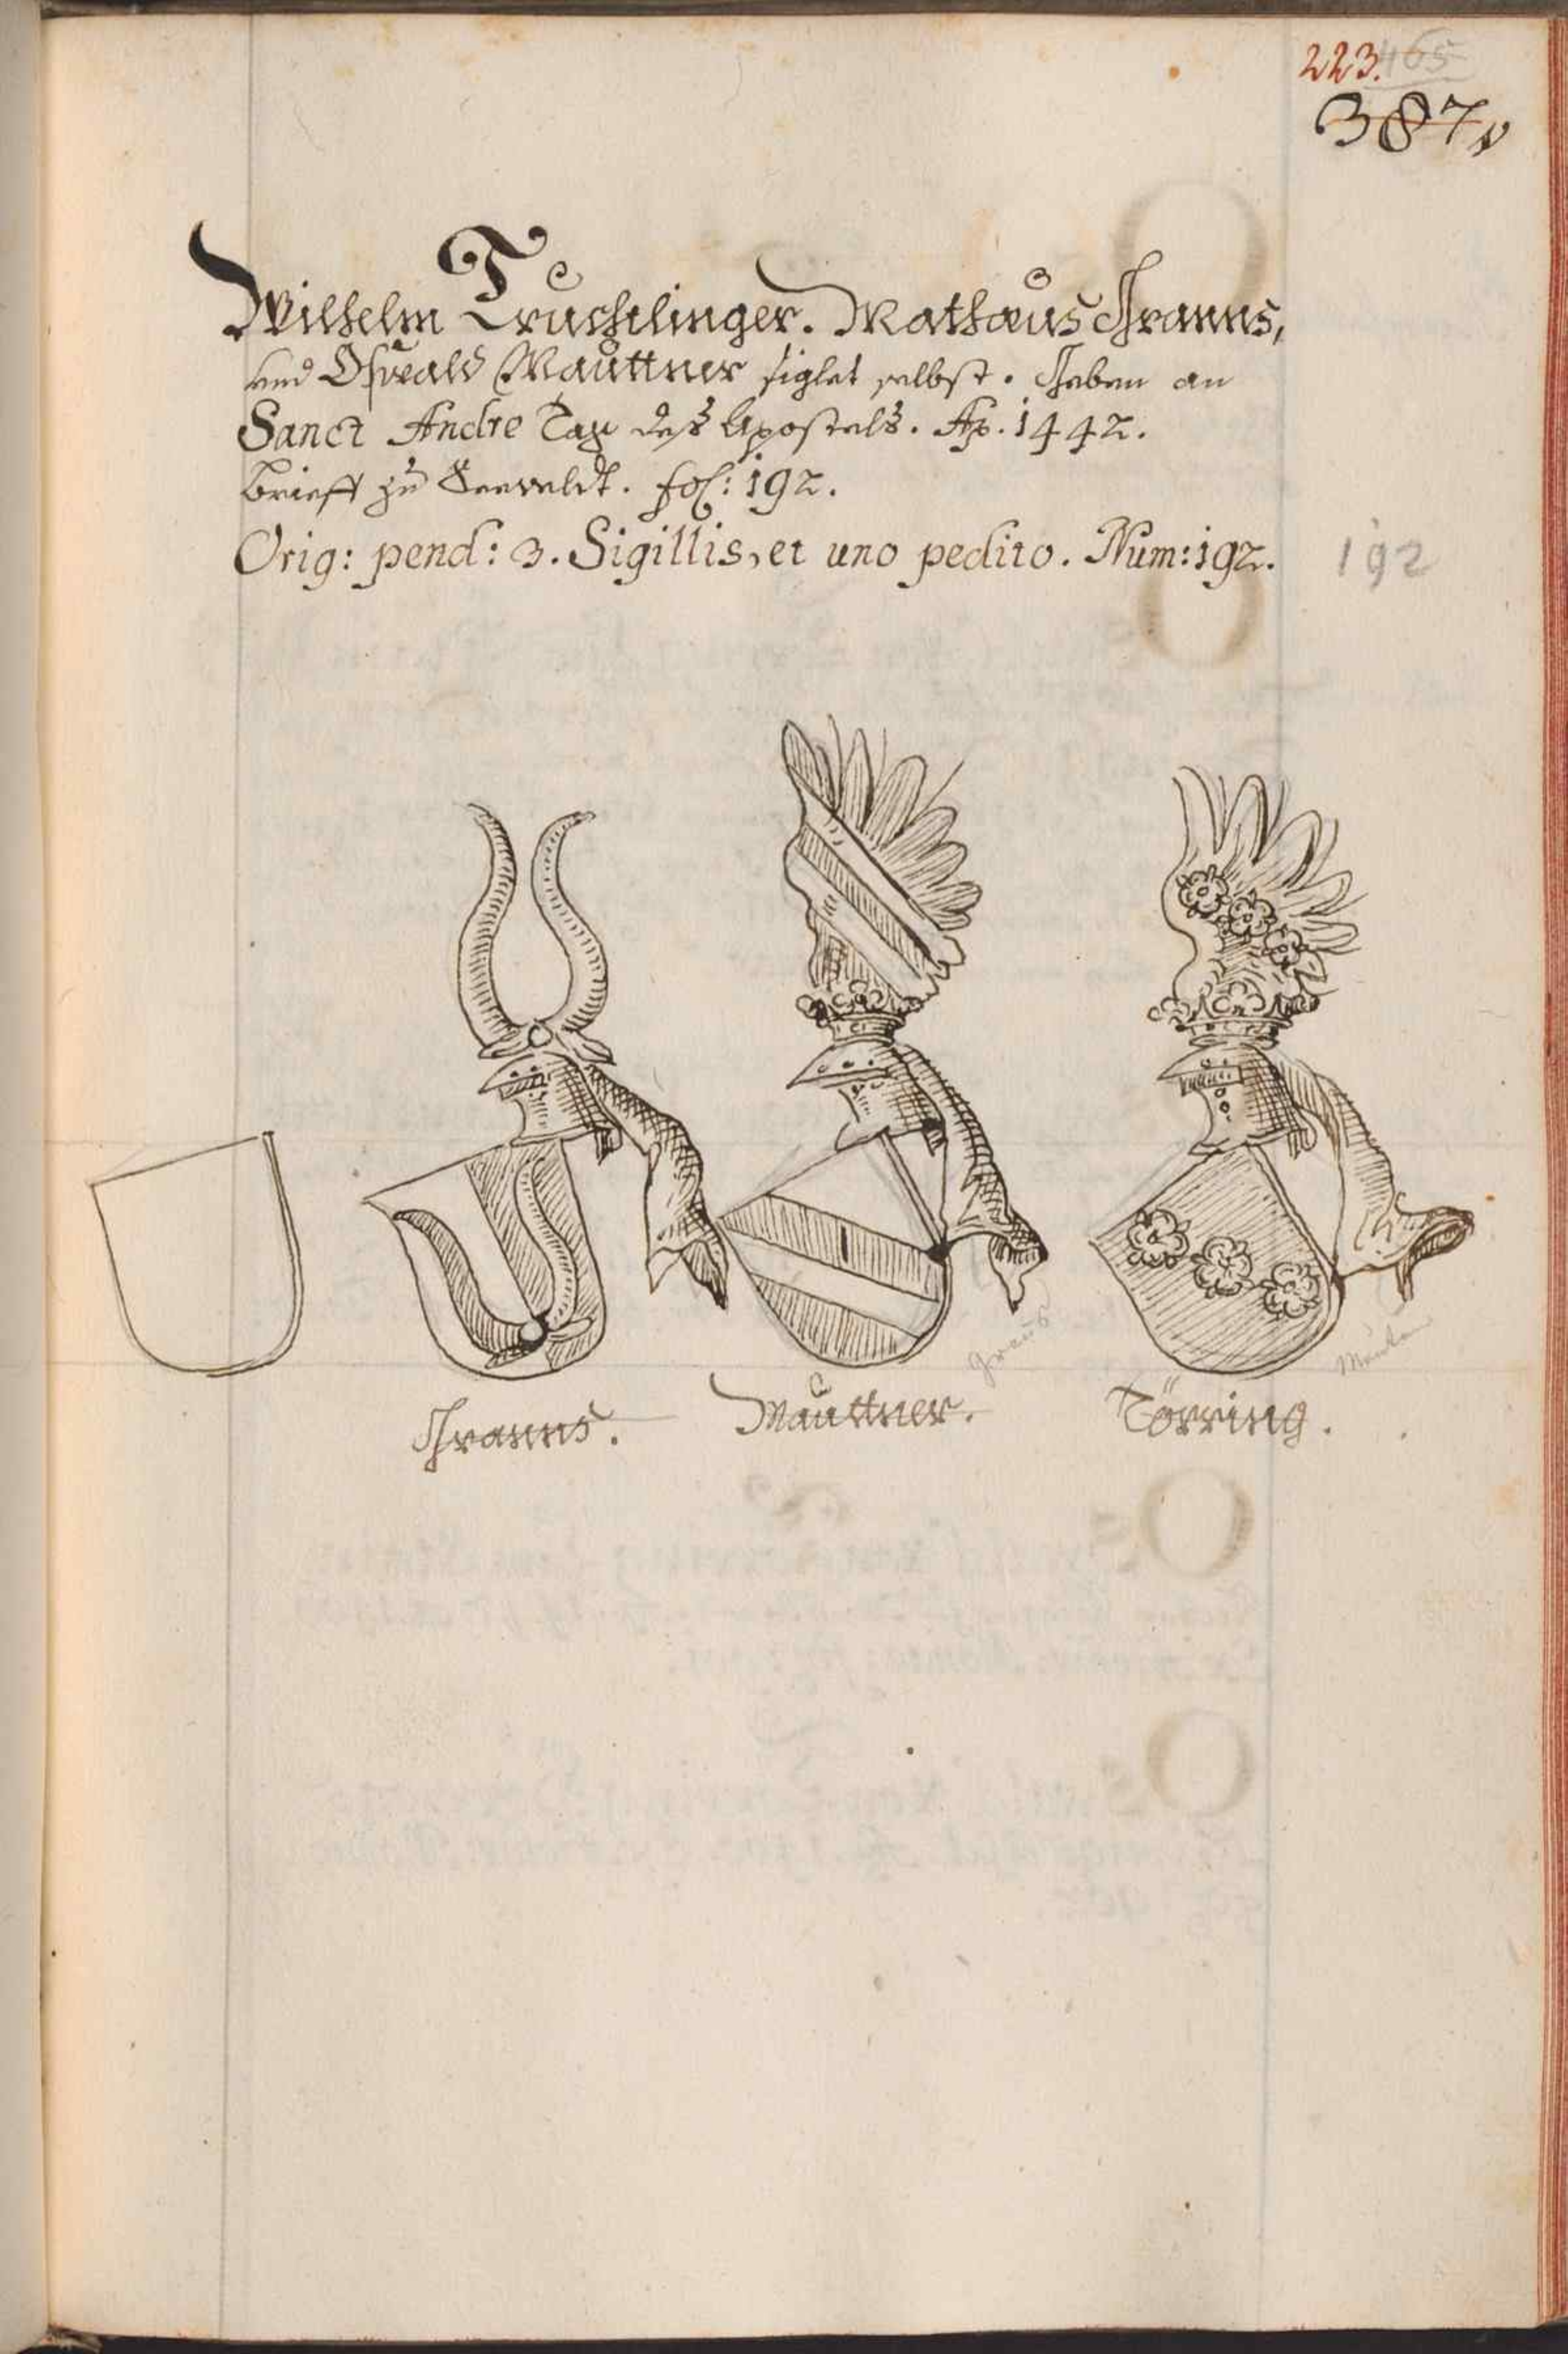 223. 465
387
Wilhelm Truchtlinger. Mathæus Granns,
und Oswald Mauttner siglet selbst. Geben an
Sanct Andre Tag deß Apostels. Ao. 1442.
Brieff zu Seeveldt. fol: 192.
Orig: pend: 3. Sigillis, et uno pedito. Num: 192. 192
Granns. Mauttner. Törring.